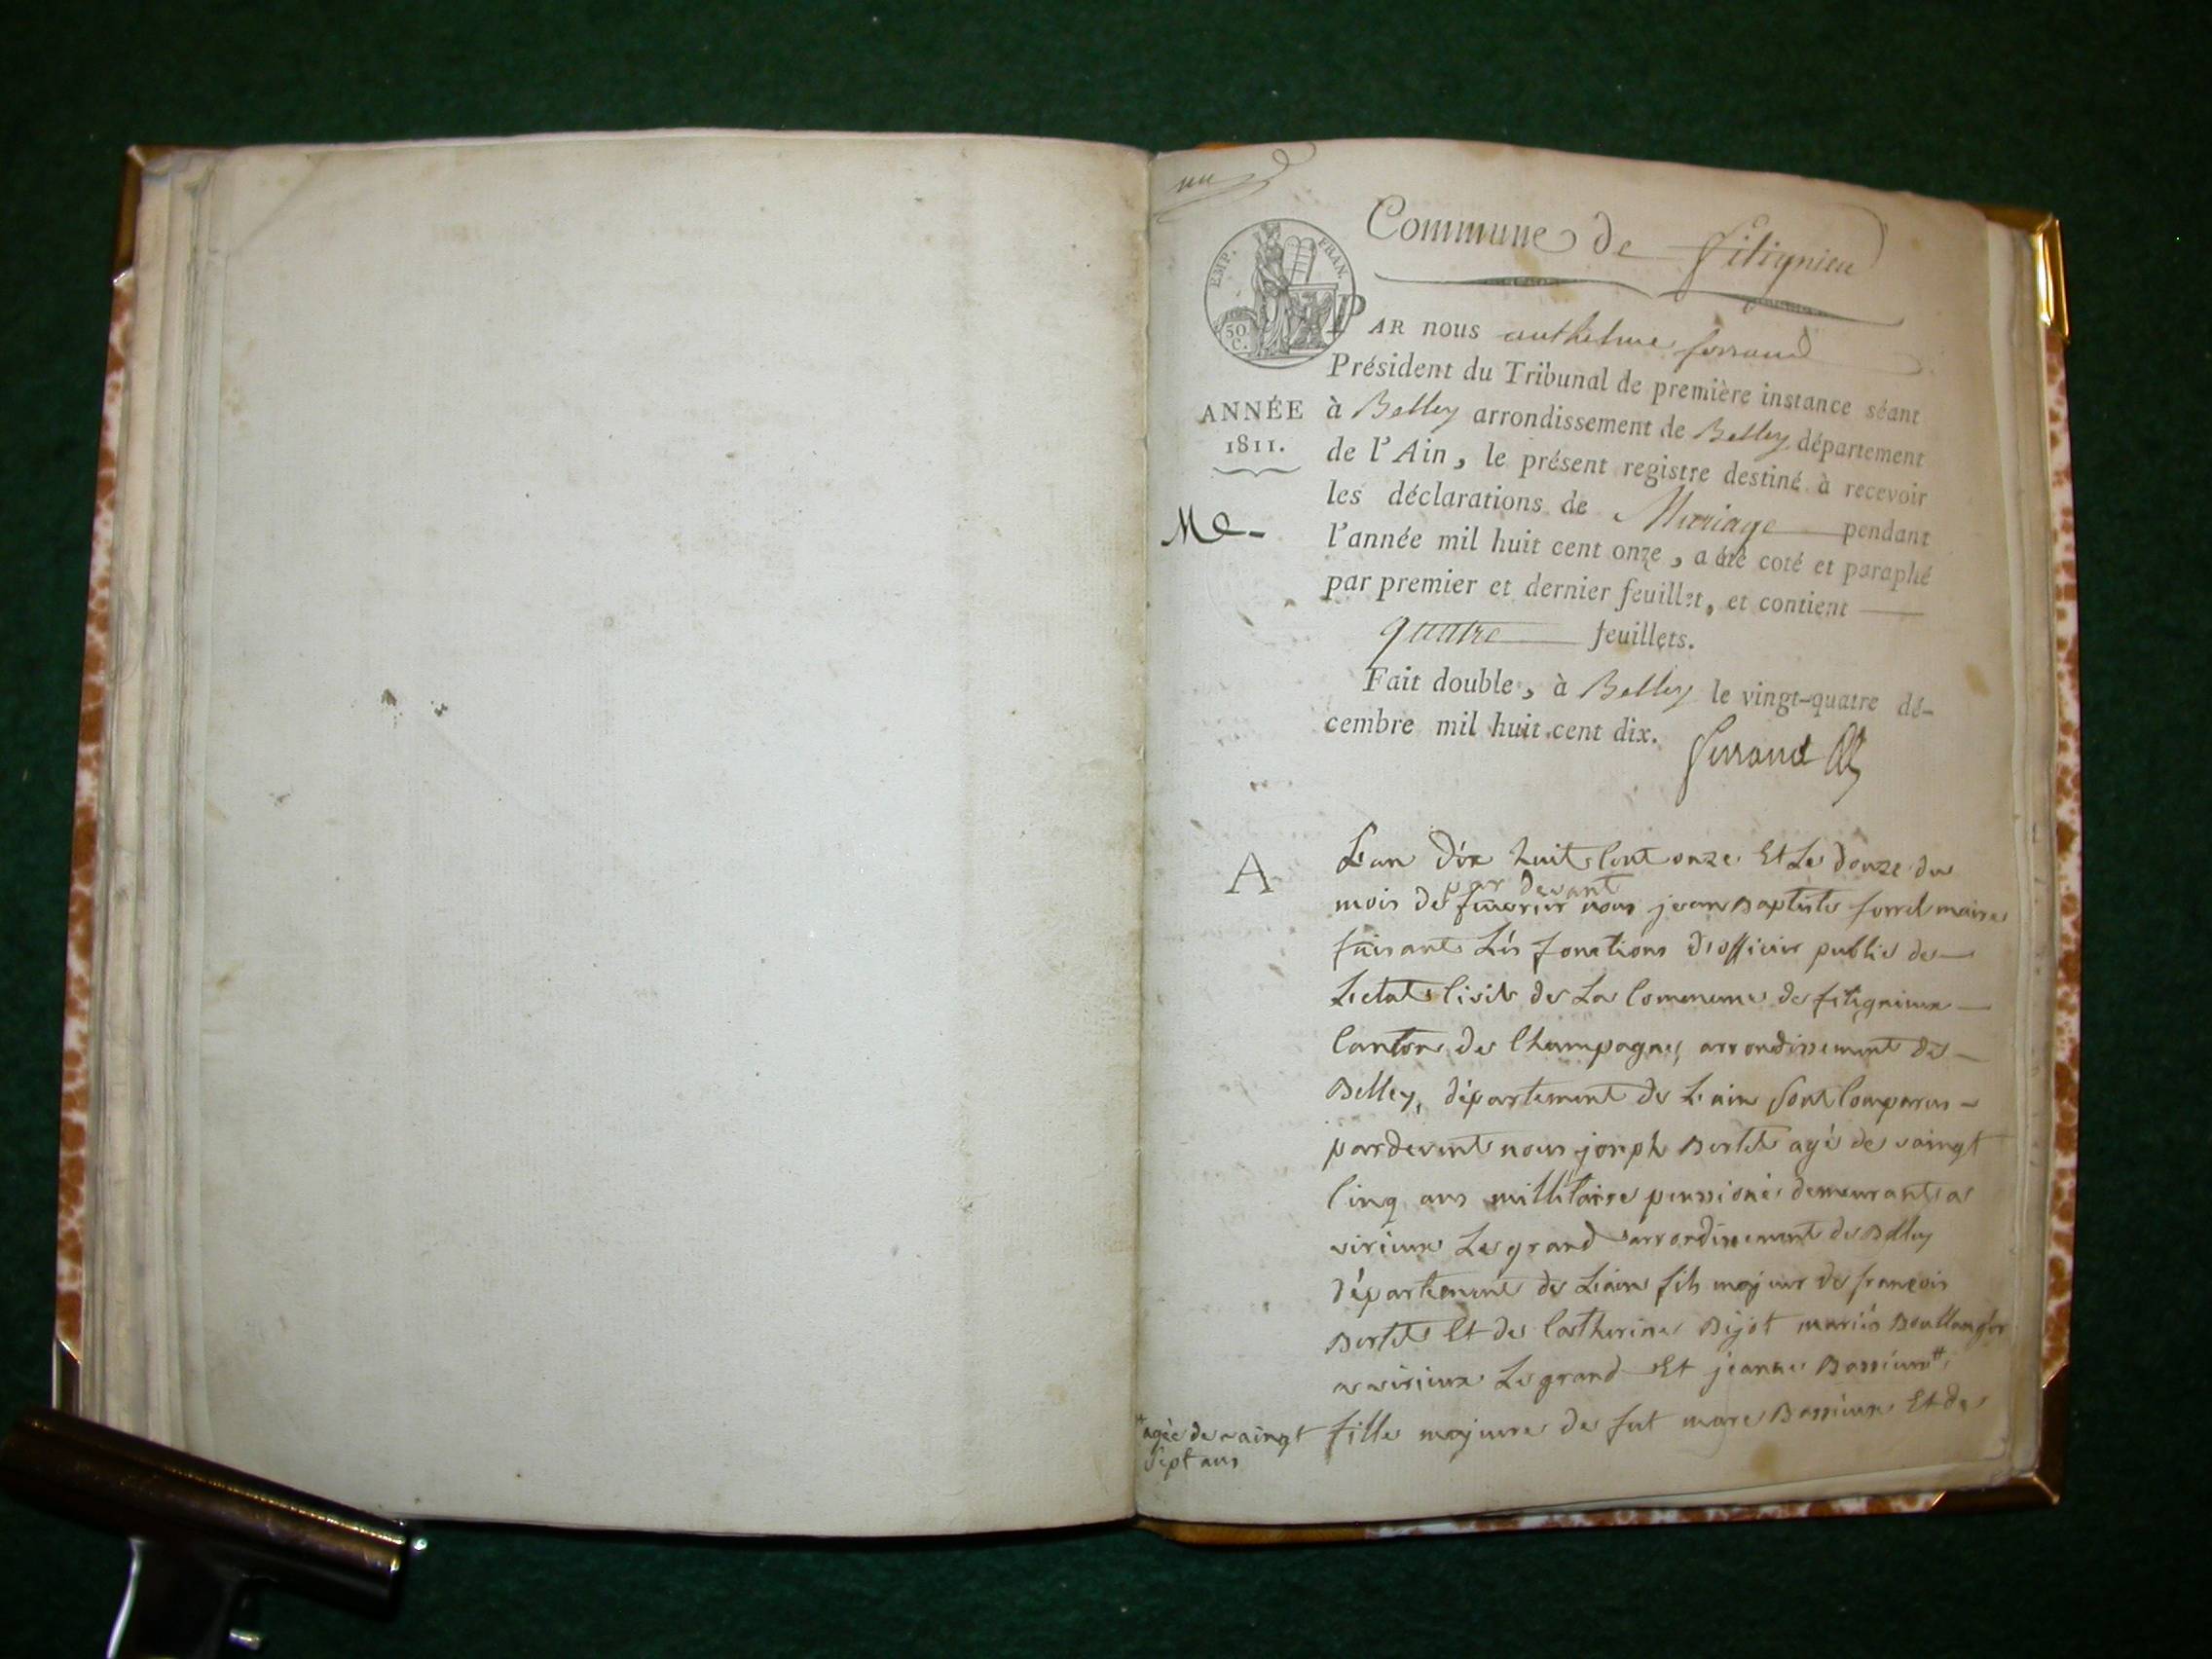 un
Commune de Fitignieu
EMP. FRAN.
50
C.
PAR nous anthelme ferrand
Président du Tribunal de première instance séant
ANNÉE
1811.
à Belley arrondissement de Belley département
de l'Ain, le présent registre destiné à recevoir
les déclarations de Mariage pendant
Me-
l'année mil huit cent onze, a été coté et paraphé
par premier et dernier feuillet, et contient
quatre feuillets.
Fait double, à Belley le vingt-quatre dé-
cembre mil huit cent dix.
ferrand
A
L'an dix huit Cent onze Et Le douze du
par devant
mois de fevrier nous jean Baptiste maire
faisant Les fonctions d'officier public de
L'etat Civil de La Commune de fitignieux
Canton de Champagne, arrondissement de
Belley, département de L'ain sont Comparus
pardevant nous joseph Bertet agé de vaingt
Cinq ans millitaire penssioné demeurant a
virieux Le grand arrondissement de Belley
département de L'ain fils majeur de françois
Bertet Et de Catherine Bijot mariés Boullanger
a virieux Le grand Et jeanne Bassieux #
fille majeure de fut marc Bassieux Et de
# agée de vaingt
sept ans